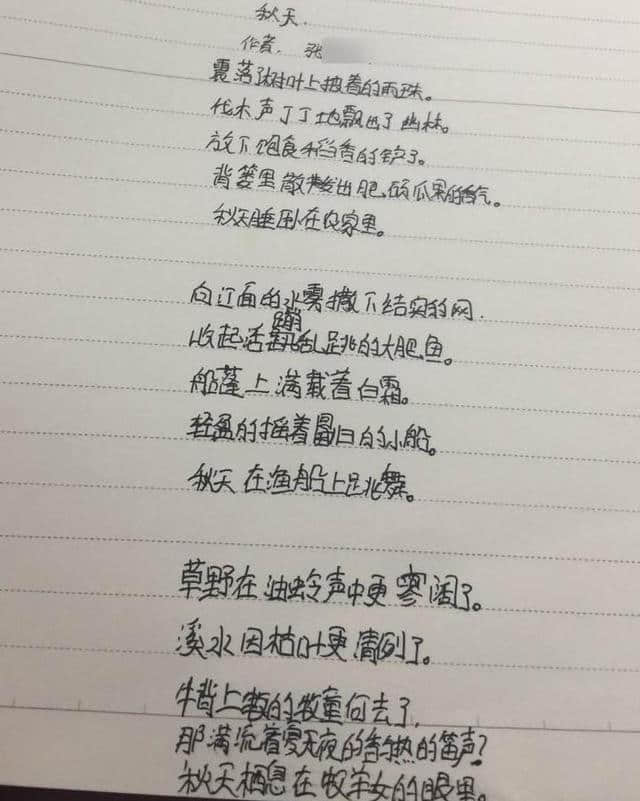 秋天.
作者. 张
震落树叶上披着的雨珠。
伐木声丁丁地飘出了幽林。
放下饱食稻香的镰了。
背篓里散发出肥硕瓜果的香气。
秋天睡卧在农家里。
向江面的水雾撒下结实的网.
收起活蹦乱跳的大肥鱼。
船蓬上满载着白霜。
轻盈的摇着归的小船。
秋天在渔船上跳舞。
草野在油蛉声中更寥阔了。
溪水因枯叶更清列了。
牛背上的牧童何去了,
那满流着夏夜的香热的笛声?
秋天栖息在牧羊女的眼里。